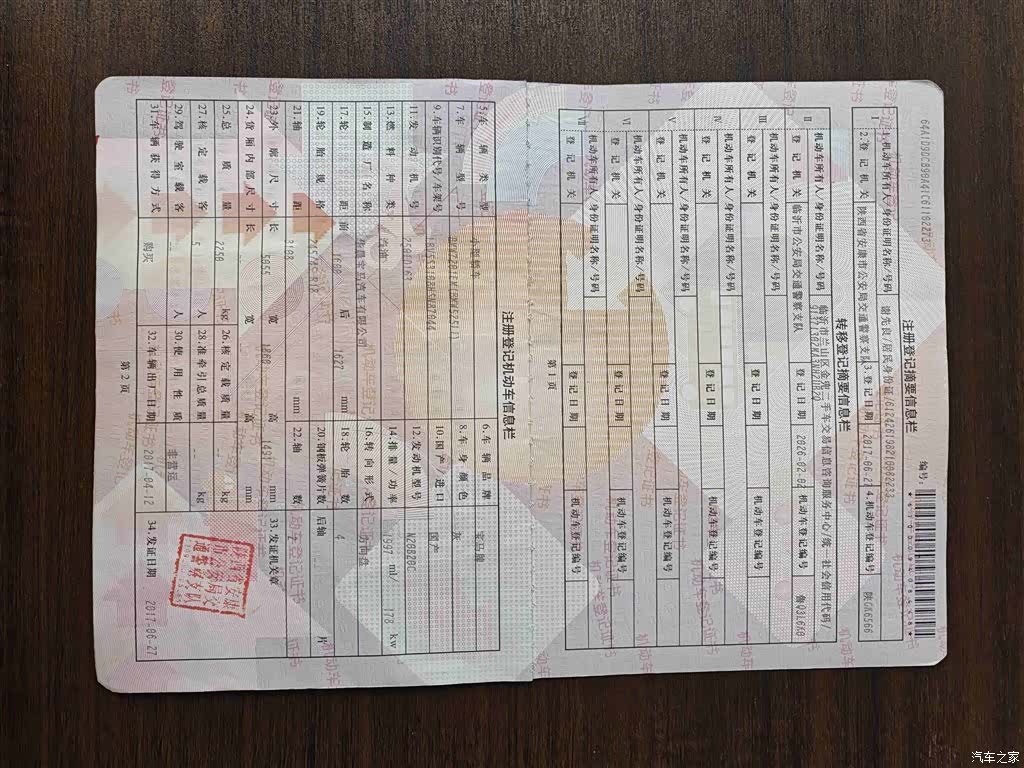 注册登记摘要信息栏
编号:
I
1.机动车所有人/身份证明名称/号码 谢先良/居民身份证/
2.登记机关 陕西省安康市公安局交通警察支队 3.登记日期 2017-06-27 4.机动车登记编号 陕GK6566
转移登记摘要信息栏
II
机动车所有人/身份证明名称/号码 临沂市兰山区金兜二手车交易信息咨询服务中心/统一社会信用代码/
登记机关 临沂市公安局交通警察支队 登记日期 2026-02-02 机动车登记编号 鲁Q3L6K0
III
机动车所有人/身份证明名称/号码
登记机关 登记日期 机动车登记编号
IV
机动车所有人/身份证明名称/号码
登记机关 登记日期 机动车登记编号
V
机动车所有人/身份证明名称/号码
登记机关 登记日期 机动车登记编号
VI
机动车所有人/身份证明名称/号码
登记机关 登记日期 机动车登记编号
VII
机动车所有人/身份证明名称/号码
登记机关 登记日期 机动车登记编号
第1页
注册登记机动车信息栏
5.车辆类型 小型轿车 6.车辆品牌 宝马牌
7.车辆型号 8.车身颜色 灰
9.车辆识别代号/车架号 10.国产/进口 国产
11.发动机号 12.发动机型号 N20B20C
13.燃料种类 汽油 14.排量/功率 1997 ml/ 178 kw
15.制造厂名称 华晨宝马汽车有限公司 16.转向形式 方向盘
17.轮距 前 1600 后 1627 mm 18.轮胎数 4
19.轮胎规格 20.钢板弹簧片数 后轴 片
21.轴距 3108 mm 22.轴数
23.外廓尺寸 长 5055 宽 1868 高 1491 mm
33.发证机关章
24.货厢内部尺寸 长 宽 高 mm
25.总质量 2250 kg 26.核定载质量 kg
27.核定载客 5 人 28.准牵引总质量 kg
29.驾驶室载客 人 30.使用性质 非营运
31.车辆获得方式 购买 32.车辆出厂日期 2017-04-12 34.发证日期 2017-06-27
陕西省安康市公安局交通警察支队
第2页
汽车之家